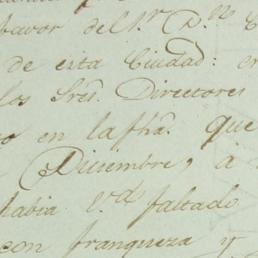 favor del Sr. Dn.
de esta Ciudad: en
los Sres. Directores
en la fha. que
Diciembre, a
habia V.d faltado
con franqueza y